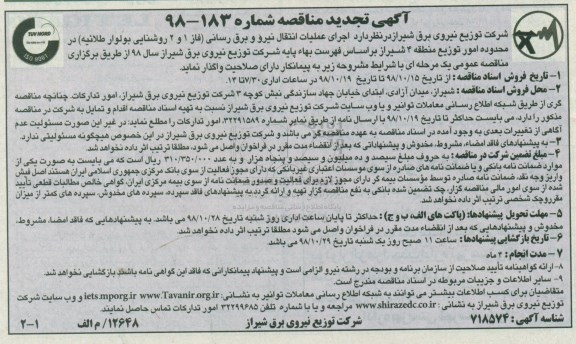 آگهی تجدید مناقصه شماره ۱۸۳-۹۸
شرکت توزیع نیروی برق شیراز درنظر دارد اجرای عملیات انتقال نیرو و برق رسانی (فاز ۱ و ۲ روشنایی بولوار طلائیه) در
محدوده امور توزیع منطقه ۳ شیراز براساس فهرست بهاء پایه شرکت توزیع نیروی برق شیراز سال ۹۸ از طریق برگزاری
مناقصه عمومی یک مرحله ای با شرایط مشروحه زیر به پیمانکار دارای صلاحیت واگذار نماید.
۱- تاریخ فروش اسناد مناقصه: از تاریخ ۹۸/۱۰/۱۵ تا تاریخ ۹۸/۱۰/۱۹ در ساعات اداری ۷/۳۰ تا ۱۳
۲- محل فروش اسناد مناقصه: شیراز، میدان آزادی، ابتدای خیابان جهاد سازندگی نبش کوچه ۳ شرکت توزیع نیروی برق شیراز، امور تدارکات. چنانچه مناقصه
گری از طریق شبکه اطلاع رسانی معاملات توانیر و یا وب سایت شرکت توزیع نیروی برق شیراز نسبت به تهیه اسناد مناقصه اقدام و تمایل به شرکت در مناقصه
مذکور را دارد، می بایست حداکثر تا تاریخ ۹۸/۱۰/۱۹ با ارسال نامه از طریق نمابر شماره ۳۲۲۹۱۵۸۹ امور تدارکات را مطلع نماید؛ در غیر این صورت مسئولیت عدم
آگاهی از تغییرات بعدی به وجود آمده در اسناد مناقصه به عهده مناقصه گر می باشد و شرکت توزیع نیروی برق شیراز در این خصوص هیچگونه مسئولیتی ندارد.
۳- به پیشنهادهای فاقد امضاء، مشروط، مخدوش و پیشنهاداتی که بعد از انقضاء مدت مقرر در فراخوان واصل می شود، مطلقا ترتیب اثر داده نخواهد شد.
۴- مبلغ تضمین شرکت در مناقصه: به حروف مبلغ سیصد و ده میلیون و سیصد و پنجاه هزار و به عدد ۳۱۰/۳۵۰/۰۰۰ ریال است که می بایست به صورت یکی از
موارد ضمانت نامه بانکی و یا ضمانت نامه های صادره از سوی موسسات اعتباری غیربانکی که دارای مجوز فعالیت از سوی بانک مرکزی جمهوری اسلامی ایران هستند اصل فیش
واریز وجه نقد، ضمانت نامه صادره توسط مؤسسات بیمه گر دارای مجوز لازم برای فعالیت و صدور ضمانت نامه از سوی بیمه مرکزی ایران، گواهی خالص مطالبات قطعی تأیید
شده از سوی امور مالی مناقصه گزار، چک تضمین شده بانکی به نفع مناقصه گزار ارائه گردد. به پیشنهادهای فاقد سپرده، سپرده های مخدوش، سپرده های کمتر از میزان
مقرر، چک شخصی ترتیب اثر داده نمی شود.
۵- مهلت تحویل پیشنهادها: (پاکت های الف، ب و ج): حداکثر تا پایان ساعت اداری روز شنبه تاریخ ۹۸/۱۰/۲۸ می باشد. به پیشنهادهایی که فاقد امضا، مشروط،
مخدوش و پیشنهادهایی که بعد از انقضاء مدت مقرر در فراخوان واصل می شود مطلقا ترتیب اثر داده نخواهد شد.
۶- تاریخ بازگشایی پیشنهادها: ساعت ۱۱ صبح روز یک شنبه تاریخ ۹۸/۱۰/۲۹ می باشد.
۷- مدت انجام: ۲ ماه
۸- ارائه گواهینامه تأیید صلاحیت از سازمان برنامه و بودجه در رشته نیرو الزامی است و پیشنهاد پیمانکارانی که فاقد این گواهی نامه باشند بازگشایی نخواهد شد.
۹- سایر اطلاعات و جزییات مربوطه در اسناد مناقصه مندرج است.
متقاضیان برای کسب اطلاعات بیشتر می توانند به شبکه اطلاع رسانی معاملات توانیر به نشانی: www.Tavanir.org.ir یا iets.mporg.ir و وب سایت شرکت
توزیع نیروی برق شیراز به نشانی: www.shirazedc.co.ir مراجعه و یا با شماره تلفن ۳۲۲۹۹۶۸۵ امور تدارکات تماس حاصل نمایند.
شناسه آگهی: ۷۱۸۵۷۴ شرکت توزیع نیروی برق شیراز ۱۲۶۴۸/م الف ۲-۱